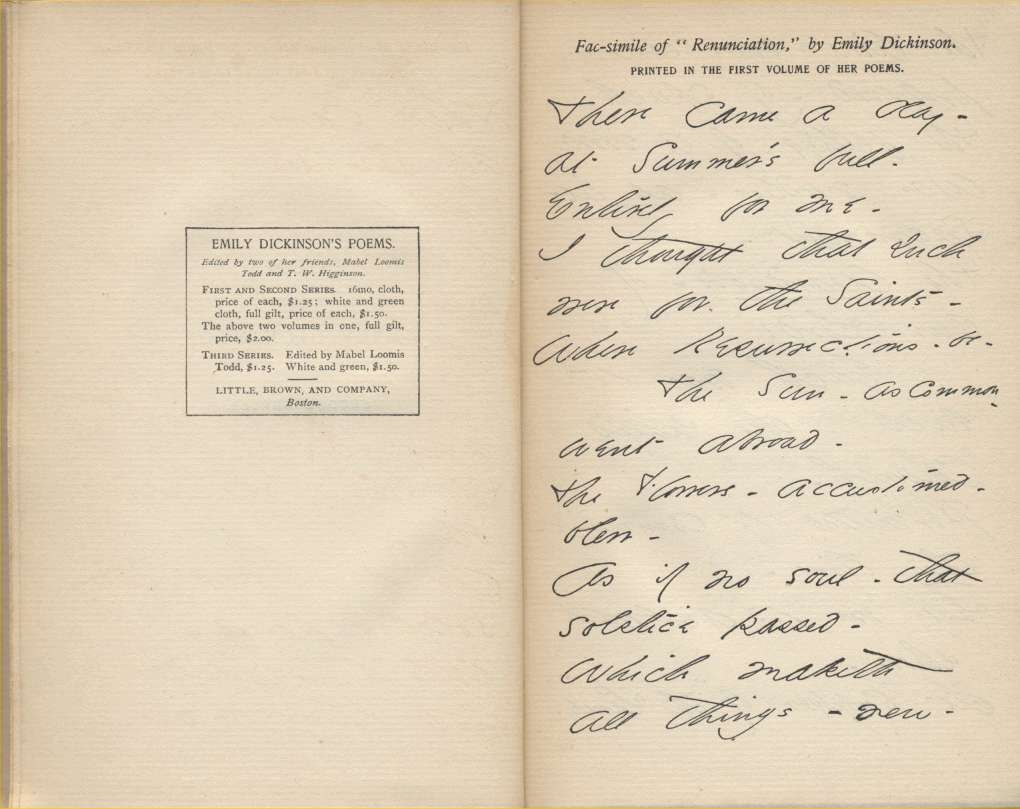 EMILY DICKINSON'S POEMS.
Edited by two of her friends, Mabel Loomis
Todd and T. W. Higginson.
FIRST AND SECOND SERIES. 16mo, cloth,
price of each, $1.25; white and green
cloth, full gilt, price of each, $1.50.
The above two volumes in one, full gilt,
price, $2.00.
THIRD SERIES. Edited by Mabel Loomis
Todd, $1.25. White and green, $1.50.
LITTLE, BROWN, AND COMPANY,
Boston.
Fac-simile of "Renunciation," by Emily Dickinson.
PRINTED IN THE FIRST VOLUME OF HER POEMS.
There came a day -
at Summer's full.
Entirely for me -
I thought that such
were for the Saints -
Where Resurrections - be -
The Sun - as common -
went abroad -
The Flowers - accustomed -
blew -
As if no soul - that
solstice passed -
Which maketh
all things - new -